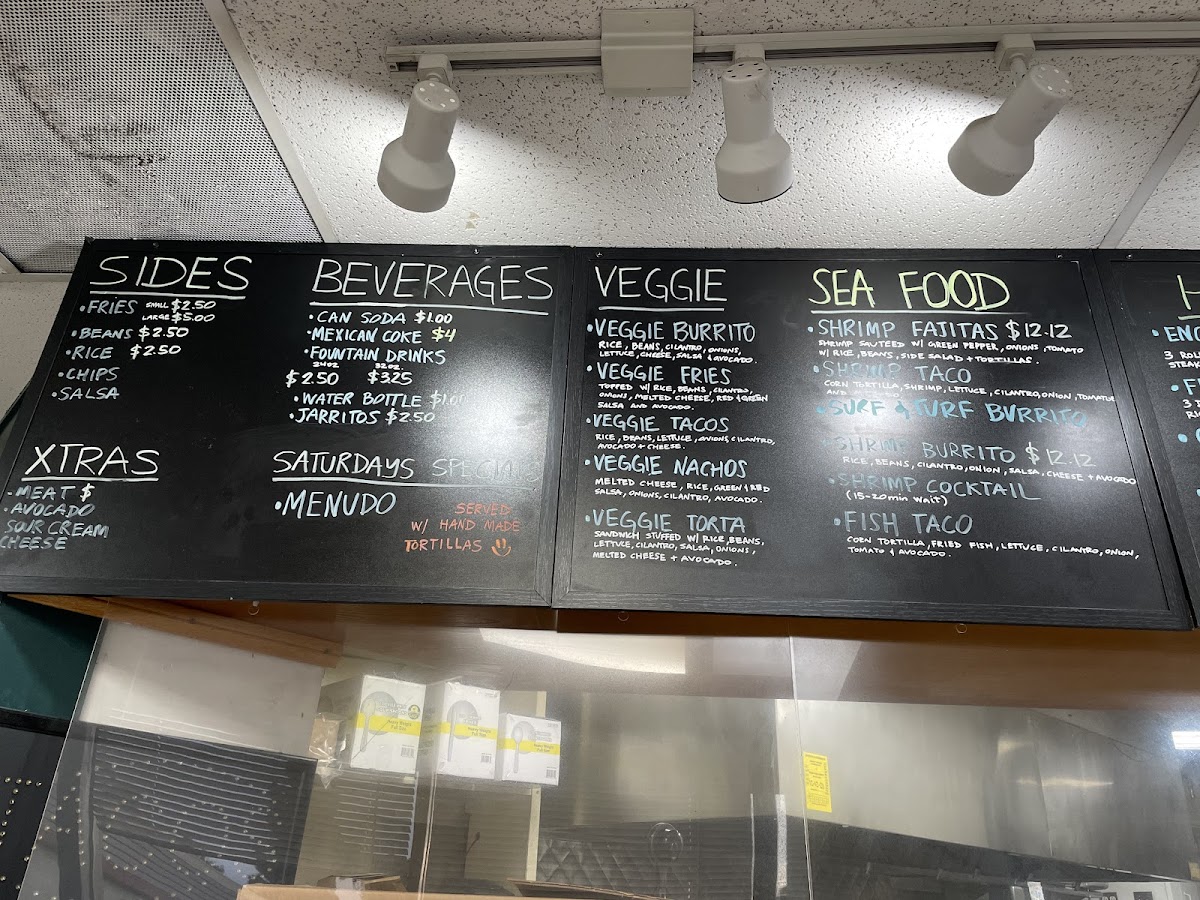 SIDES
• FRIES SMALL $2.50
LARGE $5.00
• BEANS $2.50
• RICE $2.50
• CHIPS
• SALSA
XTRAS
- MEAT $
• AVOCADO
SOUR CREAM
CHEESE
BEVERAGES
• CAN SODA $1.00
• MEXICAN COKE $4
• FOUNTAIN DRINKS
24OZ. 32OZ.
$2.50 $3.25
• WATER BOTTLE $1.00
• JARRITOS $2.50
SATURDAYS SPECIALS
• MENUDO
SERVED
W/ HAND MADE
TORTILLAS
VEGGIE
• VEGGIE BURRITO
RICE, BEANS, CILANTRO, ONIONS,
LETTUCE, CHEESE, SALSA & AVOCADO.
• VEGGIE FRIES
TOPPED W/ RICE, BEANS, CILANTRO,
ONIONS, MELTED CHEESE, RED & GREEN
SALSA AND AVOCADO.
• VEGGIE TACOS
RICE, BEANS, LETTUCE, ONIONS, CILANTRO,
AVOCADO + CHEESE.
• VEGGIE NACHOS
MELTED CHEESE, RICE, GREEN & RED
SALSA, ONIONS, CILANTRO, AVOCADO.
• VEGGIE TORTA
SANDWICH STUFFED W/ RICE, BEANS,
LETTUCE, CILANTRO, SALSA, ONIONS,
MELTED CHEESE + AVOCADO.
SEA FOOD
• SHRIMP FAJITAS $12.12
SHRIMP SAUTEED W/ GREEN PEPPER, ONIONS, TOMATO
W/ RICE, BEANS, SIDE SALAD + TORTILLAS.
• SHRIMP TACO
CORN TORTILLA, SHRIMP, LETTUCE, CILANTRO, ONION, TOMATOE
AND
• SURF & TURF BURRITO
• SHRIMP BURRITO $12.12
RICE, BEANS, CILANTRO, ONION, SALSA, CHEESE + AVOCADO
• SHRIMP COCKTAIL
(15-20min WAIT)
• FISH TACO
CORN TORTILLA, FRIED FISH, LETTUCE, CILANTRO, ONION,
TOMATO & AVOCADO.
H
• ENC
3 ROL
STEAK
• F
3
RI